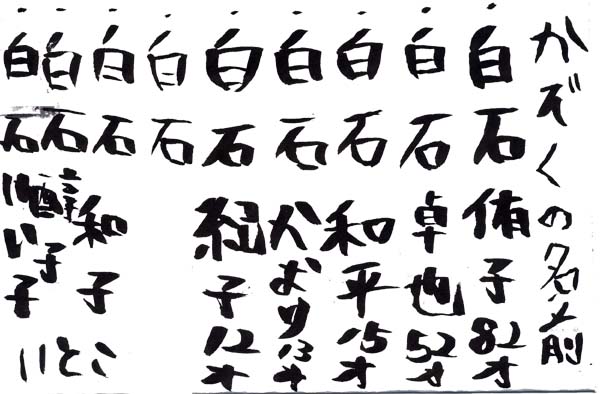 かぞくの名前
白石侑子82才
白石卓也52才
白石和平15才
白石かおり13才
白石紐子12才
白石
白石和子
白石子
白石い子
いとこ